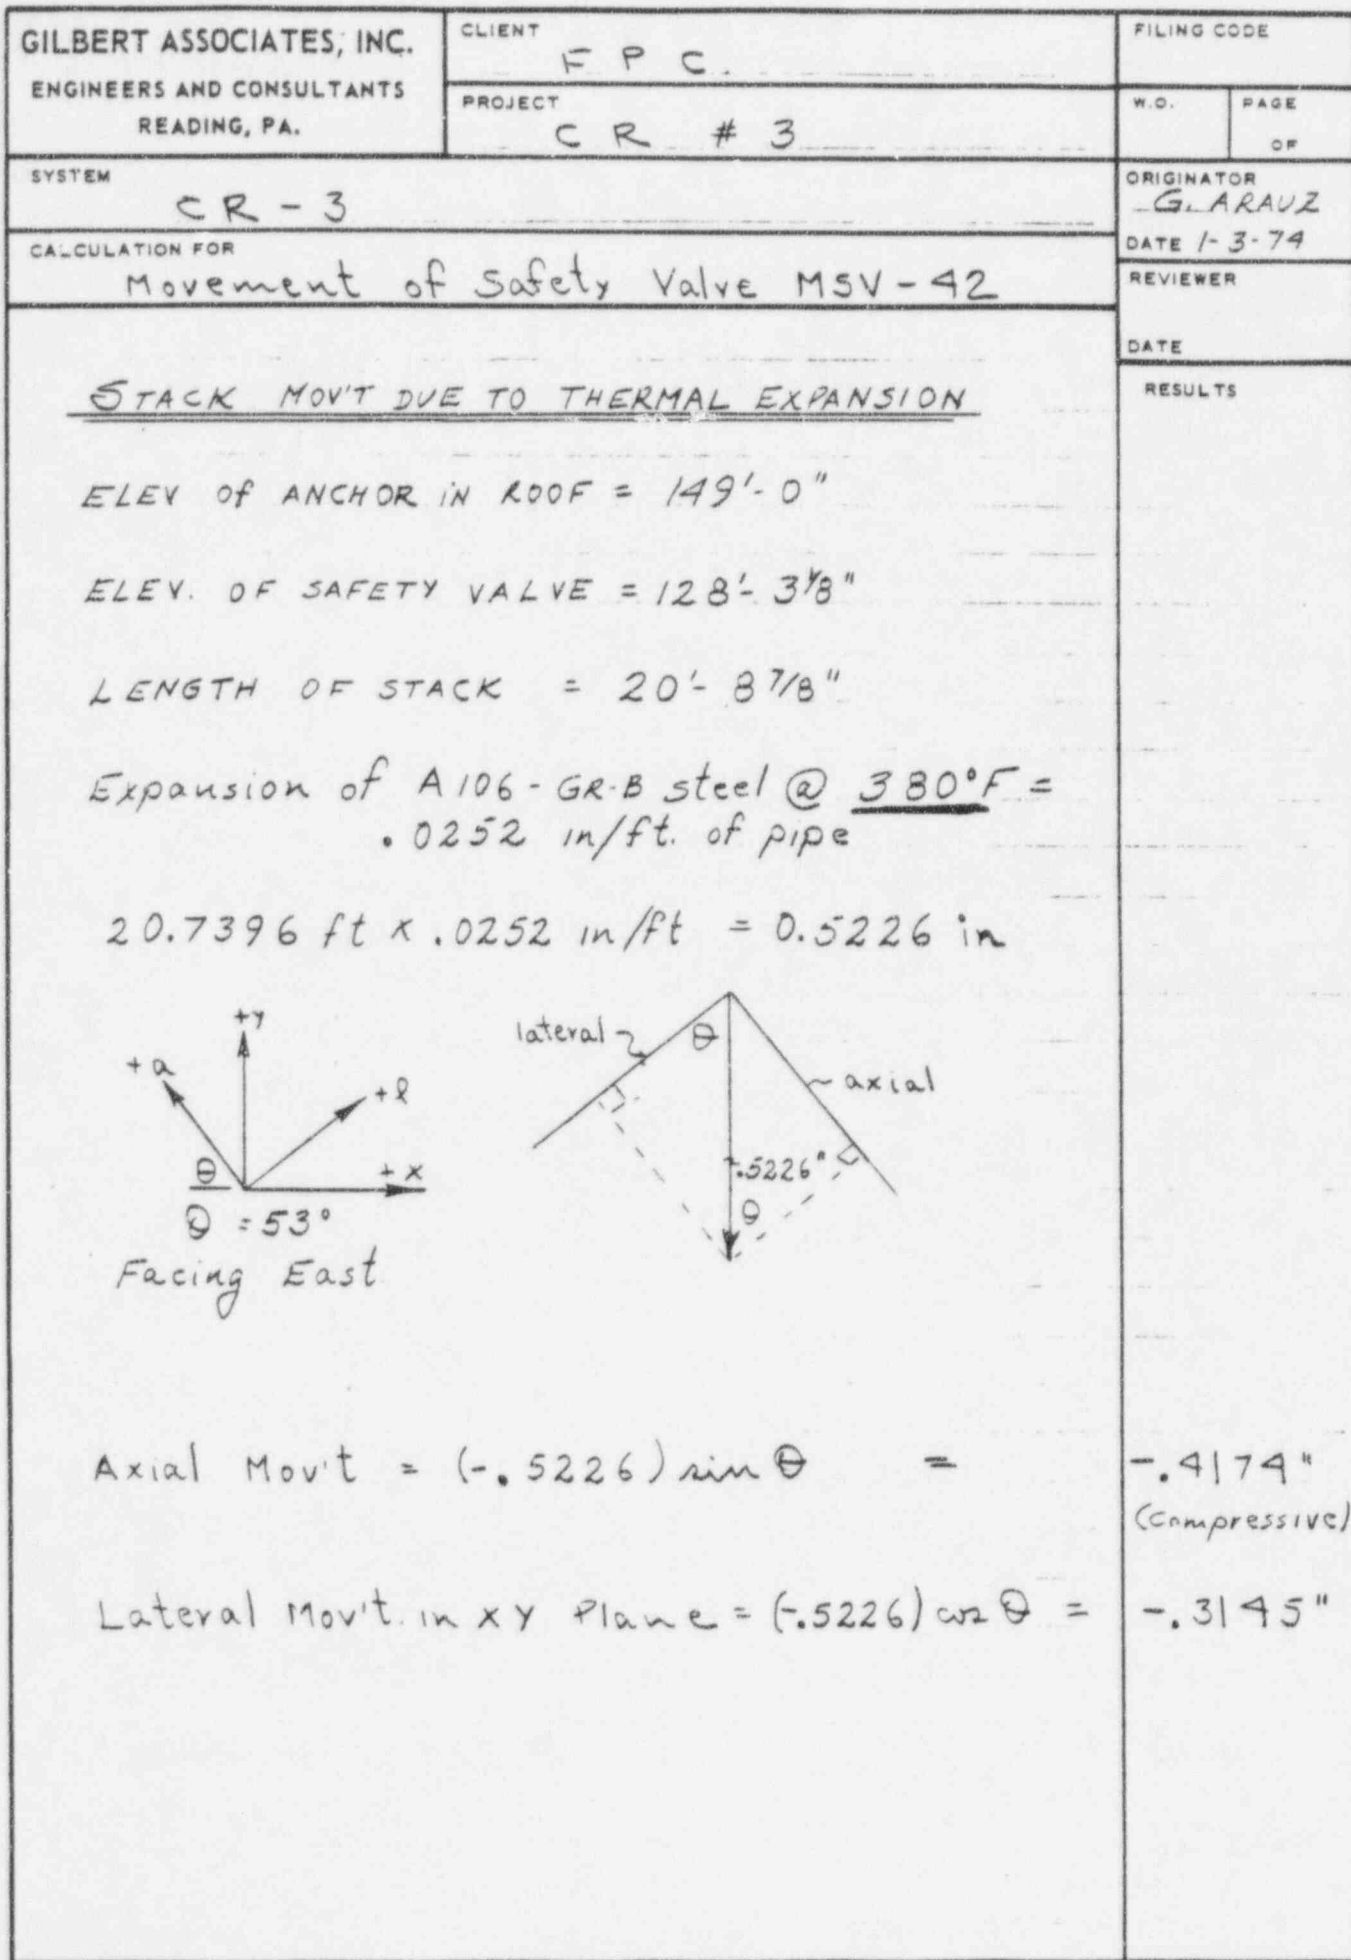 GILBERT ASSOCIATES, INC.
ENGINEERS AND CONSULTANTS
READING, PA.
CLIENT
F P C.
PROJECT
C R # 3
FILING CODE
W.O.
PAGE
OF
SYSTEM
CR - 3
ORIGINATOR
G. ARAUZ
DATE 1-3-74
CALCULATION FOR
Movement of Safety Valve MSV-42
REVIEWER
DATE
RESULTS
STACK MOV'T DUE TO THERMAL EXPANSION
ELEV of ANCHOR IN ROOF = 149'-0"
ELEV. OF SAFETY VALVE = 128'-3 1/8"
LENGTH OF STACK = 20'-8 7/8"
Expansion of A106-GR-B steel @ 380°F =
.0252 in/ft. of pipe
20.7396 ft x .0252 in/ft = 0.5226 in
+y
+a
+l
θ
+x
θ = 53°
Facing East
lateral
θ
axial
-.5226"
θ
Axial Mov't = (-.5226) sin θ = -.4174"
(compressive)
Lateral Mov't. in xy Plane = (-.5226) cos θ = -.3145"